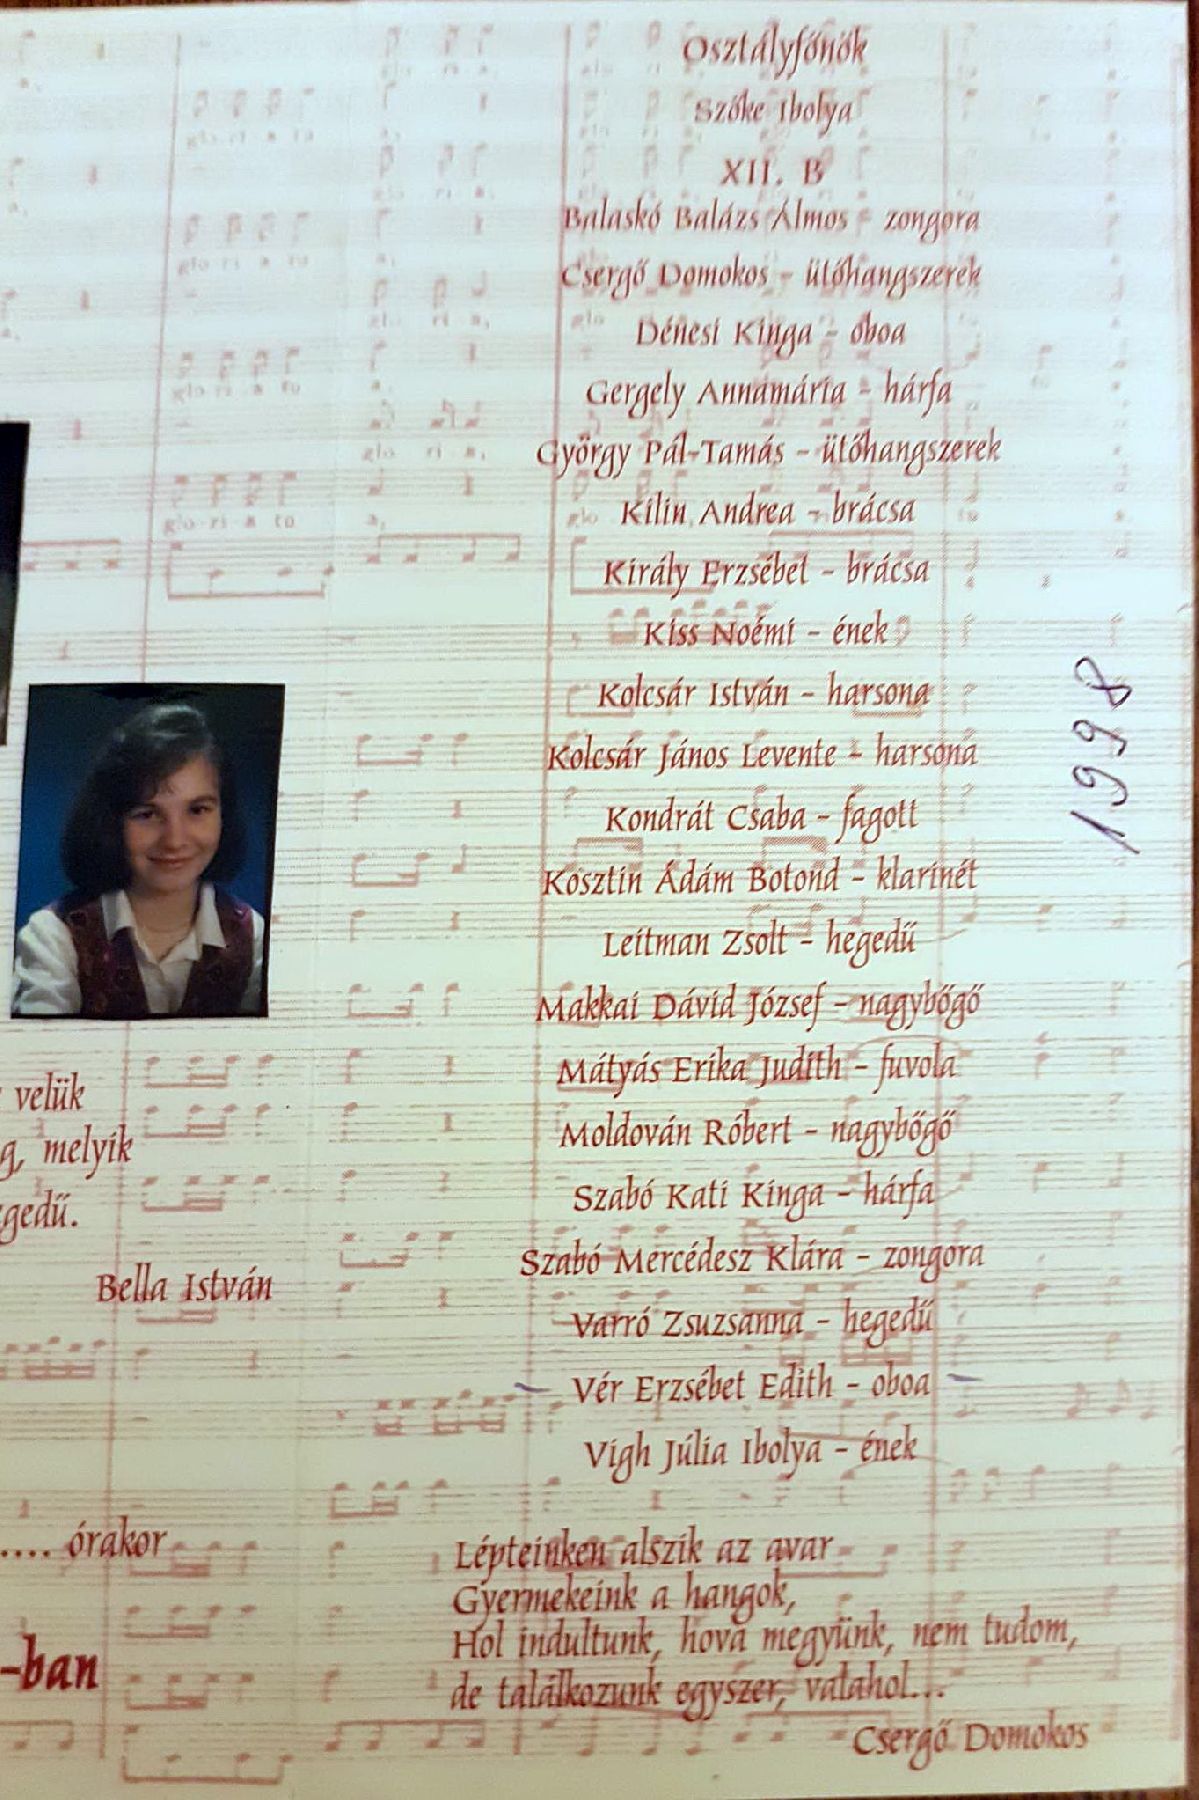 Osztályfőnök
Szőke Ibolya
XII. B
Balaskó Balázs Álmos - zongora
Csergő Domokos - ütőhangszerek
Dénesi Kinga - oboa
Gergely Annamária - hárfa
György Pál-Tamás - ütőhangszerek
Kilin Andrea - brácsa
Király Erzsébet - brácsa
Kiss Noémi - ének
Kolcsár István - harsona
Kolcsár János Levente - harsona
Kondrát Csaba - fagott
Kosztin Ádám Botond - klarinét
Leitman Zsolt - hegedű
Makkai Dávid József - nagybőgő
Mátyás Erika Judith - fuvola
Moldován Róbert - nagybőgő
Szabó Kati Kinga - hárfa
Szabó Mercédesz Klára - zongora
Varró Zsuzsanna - hegedű
Vér Erzsébet Edith - oboa
Vigh Júlia Ibolya - ének
1998
velük
melyik
gedű.
Bella István
.... órakor
-ban
Lépteinken alszik az avar
Gyermekeink a hangok,
Hol indultunk, hova megyünk, nem tudom,
de találkozunk egyszer, valahol...
Csergő Domokos